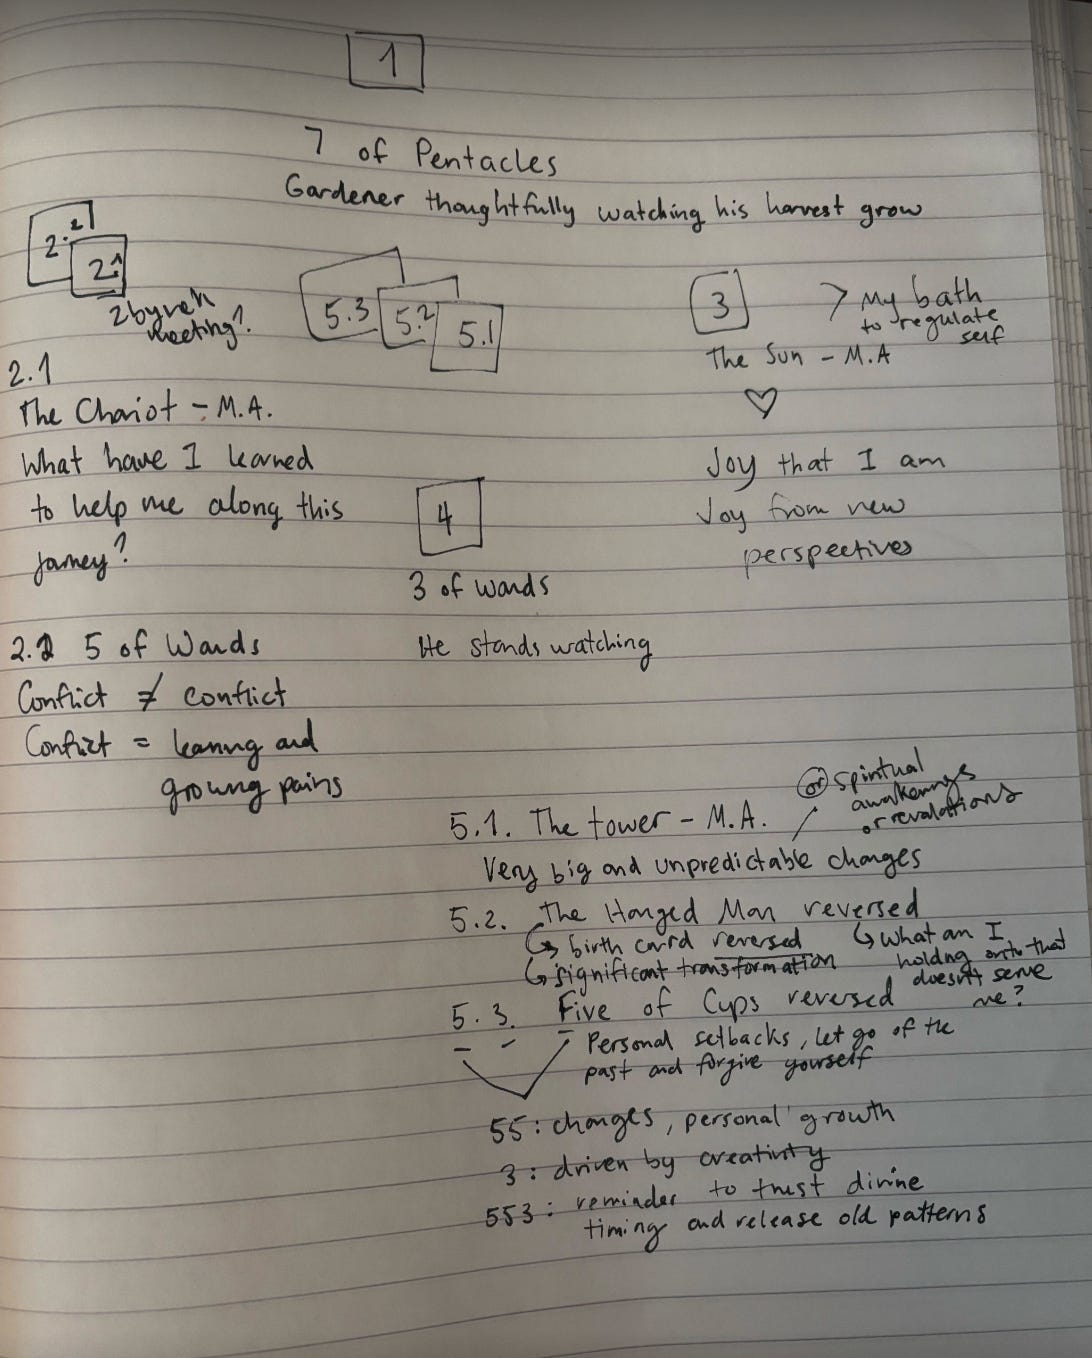 1
7 of Pentacles
Gardener thoughtfully watching his harvest grow
2.2
2.1
meeting?
5.3 5.2 5.1
3
> My bath
to regulate
self
The Sun - M.A
♡
Joy that I am
Joy from new
perspectives
2.1
The Chariot - M.A.
What have I learned
to help me along this
jorney?
4
3 of wands
He stands watching
2.2 5 of Wands
Conflict ≠ conflict
Conflict = learning and
growing pains
5.1. The tower - M.A.
or spiritual
awakenings
or revalations
Very big and unpredictable changes
5.2. The Hanged Man reversed
↳ birth card reversed
↳ significant transformation
↳ What am I
holding onto that
doesn't serve
me?
5.3. Five of Cups reversed
Personal setbacks, let go of the
past and forgive yourself
55: changes, personal growth
3: driven by creativity
553: reminder to trust divine
timing and release old patterns